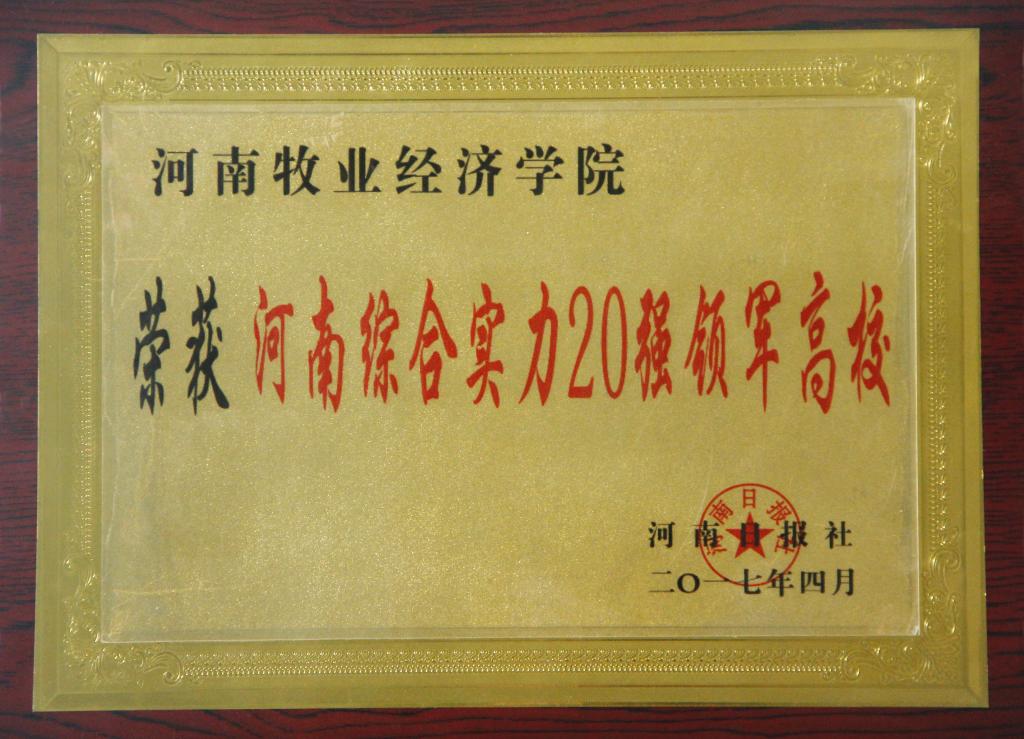 河南牧业经济学院
荣获 河南综合实力20强领军高校
河南日报社
河南日报社
二〇一七年四月